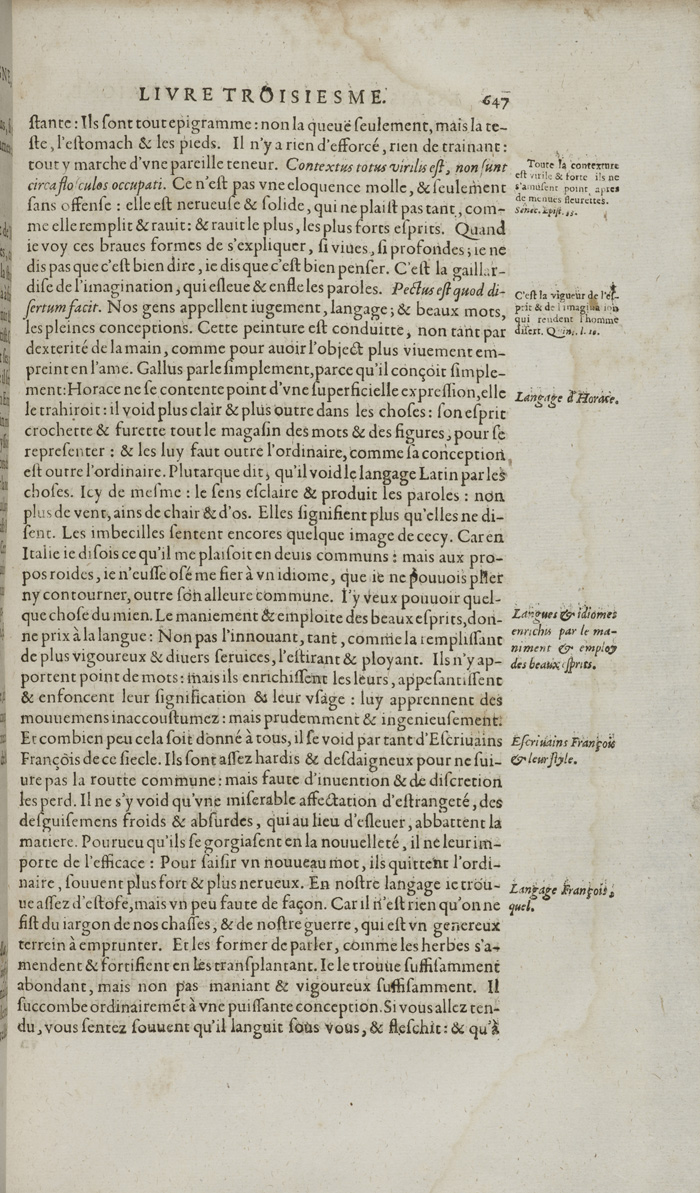 LIVRE TROISIESME. 647
ſtante : Ils ſont tout epigramme : non la queuë ſeulement, mais la te-
ſte, l'eſtomach & les pieds. Il n'y a rien d'efforcé, rien de trainant :
tout y marche d'vne pareille teneur. Contextus totus virilis eſt, non ſunt
circa floſculos occupati. Ce n'eſt pas vne eloquence molle, & ſeulement
ſans offenſe : elle eſt nerueuſe & ſolide, qui ne plaiſt pas tant, com-
me elle remplit & rauit : & rauit le plus, les plus forts eſprits. Quand
ie voy ces braues formes de s'expliquer, ſi viues, ſi profondes ; ie ne
dis pas que c'eſt bien dire, ie dis que c'eſt bien penſer. C'eſt la gaillar-
diſe de l'imagination, qui eſleue & enfle les paroles. Pectus eſt quod di-
ſertum facit. Nos gens appellent iugement, langage ; & beaux mots,
les pleines conceptions. Cette peinture eſt conduitte, non tant par
dexterité de la main, comme pour auoir l'object plus viuement em-
preint en l'ame. Gallus parle ſimplement, parce qu'il conçoit ſimple-
ment : Horace ne ſe contente point d'vne ſuperficielle expreſſion, elle
le trahiroit : il void plus clair & plus outre dans les choſes : ſon eſprit
crochette & furette tout le magaſin des mots & des figures, pour ſe
repreſenter : & les luy faut outre l'ordinaire, comme ſa conception
eſt outre l'ordinaire. Plutarque dit, qu'il void le langage Latin par les
choſes. Icy de meſme : le ſens eſclaire & produit les paroles : non
plus de vent, ains de chair & d'os. Elles ſignifient plus qu'elles ne di-
ſent. Les imbecilles ſentent encores quelque image de cecy. Car en
Italie ie diſois ce qu'il me plaiſoit en deuis communs : mais aux pro-
pos roides, ie n'euſſe oſé me fier à vn idiome, que ie ne pouuois plier
ny contourner, outre ſon alleure commune. I'y veux pouuoir quel-
que choſe du mien. Le maniement & emploite des beaux eſprits, don-
ne prix à la langue : Non pas l'innouant, tant, comme la rempliſſant
de plus vigoureux & diuers ſeruices, l'eſtirant & ployant. Ils n'y ap-
portent point de mots : mais ils enrichiſſent les leurs, appeſantiſſent
& enfoncent leur ſignification & leur vſage : luy apprennent des
mouuemens inaccouſtumez : mais prudemment & ingenieuſement.
Et combien peu cela ſoit donné à tous, il ſe void par tant d'Eſcriuains
François de ce ſiecle. Ils ſont aſſez hardis & deſdaigneux pour ne ſui-
ure pas la routte commune : mais faute d'inuention & de diſcretion
les perd. Il ne s'y void qu'vne miſerable affectation d'eſtrangeté, des
deſguiſemens froids & abſurdes, qui au lieu d'eſleuer, abbattent la
matiere. Pourueu qu'ils ſe gorgiaſent en la nouuelleté, il ne leur im-
porte de l'efficace : Pour ſaiſir vn nouueau mot, ils quittent l'ordi-
naire, ſouuent plus fort & plus nerueux. En noſtre langage ie trou-
ue aſſez d'eſtofe, mais vn peu faute de façon. Car il n'eſt rien qu'on ne
fiſt du iargon de nos chaſſes, & de noſtre guerre, qui eſt vn genereux
terrein à emprunter. Et les former de parler, comme les herbes s'a-
mendent & fortifient en les tranſplantant. Ie le trouue ſuffiſamment
abondant, mais non pas maniant & vigoureux ſuffiſamment. Il
ſuccombe ordinairemēt à vne puiſſante conception. Si vous allez ten-
du, vous ſentez ſouuent qu'il languit ſous vous, & fleſchit : & qu'à
Toute la contexture
eſt virile & forte ils ne
s'amuſent point apres
de menues fleurettes.
Senec. Epiſt. 33.
C'eſt la vigueur de l'eſ-
prit & de l'imagination
qui rendent l'homme
diſert. Quinc. l. 10.
Langage d'Horace.
Langues & idiomes
enrichis par le ma-
niment & employ
des beaux eſprits.
Eſcriuains François
& leur ſtyle.
Langage François,
quel.